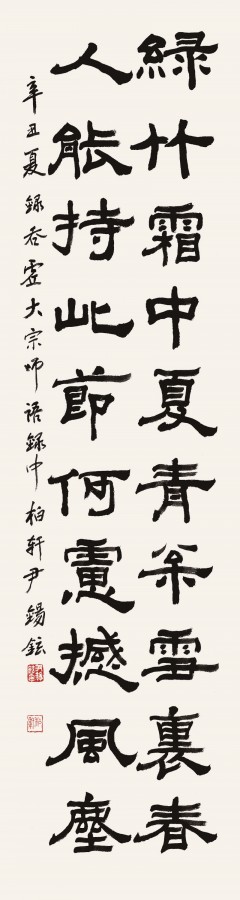 綠竹霜中夏青枀雪裏春
人能持此節何慮撼風塵
辛丑夏錄呑虛大宗師語錄中柏軒尹錫鉉